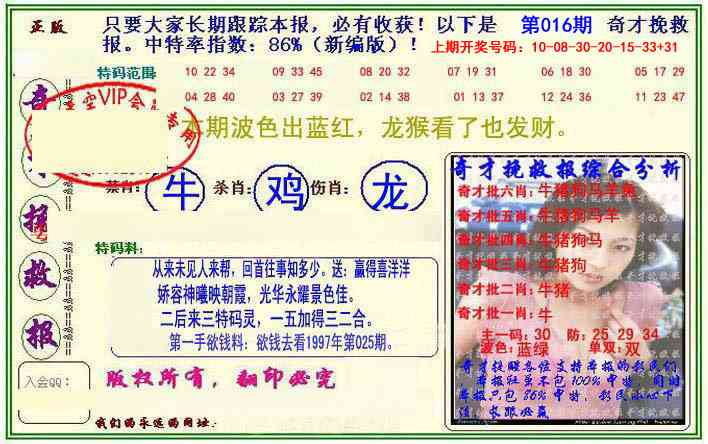 正版
只要大家长期跟踪本报，必有收获！以下是 第016期 奇才挽救
报。中特率指数：86%（新编版）！ 上期开奖号码：10-08-30-20-15-33+31
特码范围
10 22 34 09 33 45 08 20 32 07 19 31 06 18 30 05 17 29
04 28 40 03 27 39 02 14 38 01 13 37 12 24 36 11 23 47
空VIP会
专用
本期波色出蓝红，龙猴看了也发财。
禁肖： 牛 杀肖： 鸡 伤肖： 龙
奇
救
报
特码料：
从来未见人来帮，回首往事知多少。送：赢得喜洋洋
娇容神曦映朝霞，光华永耀景色佳。
二后来三特码灵，一五加得三二合。
第一手欲钱料：欲钱去看1997年第025期。
入会QQ：
版权所有，翻印必究
我们的永远的网址：
奇才挽救报综合分析
奇才批六肖：牛猪狗马羊
奇才批五肖：牛猪狗马羊
奇才批四肖：牛猪狗马
奇才批三肖：牛猪狗
奇才批二肖：牛猪
奇才批一肖：牛
主一码：30 防：25 29 34
波色：蓝绿 单双：双
奇才挽救各位支持本报的彩民们
本报虽不包100%中特，同时
本报只包86%中特，彩民小心下
注，长跟必赢